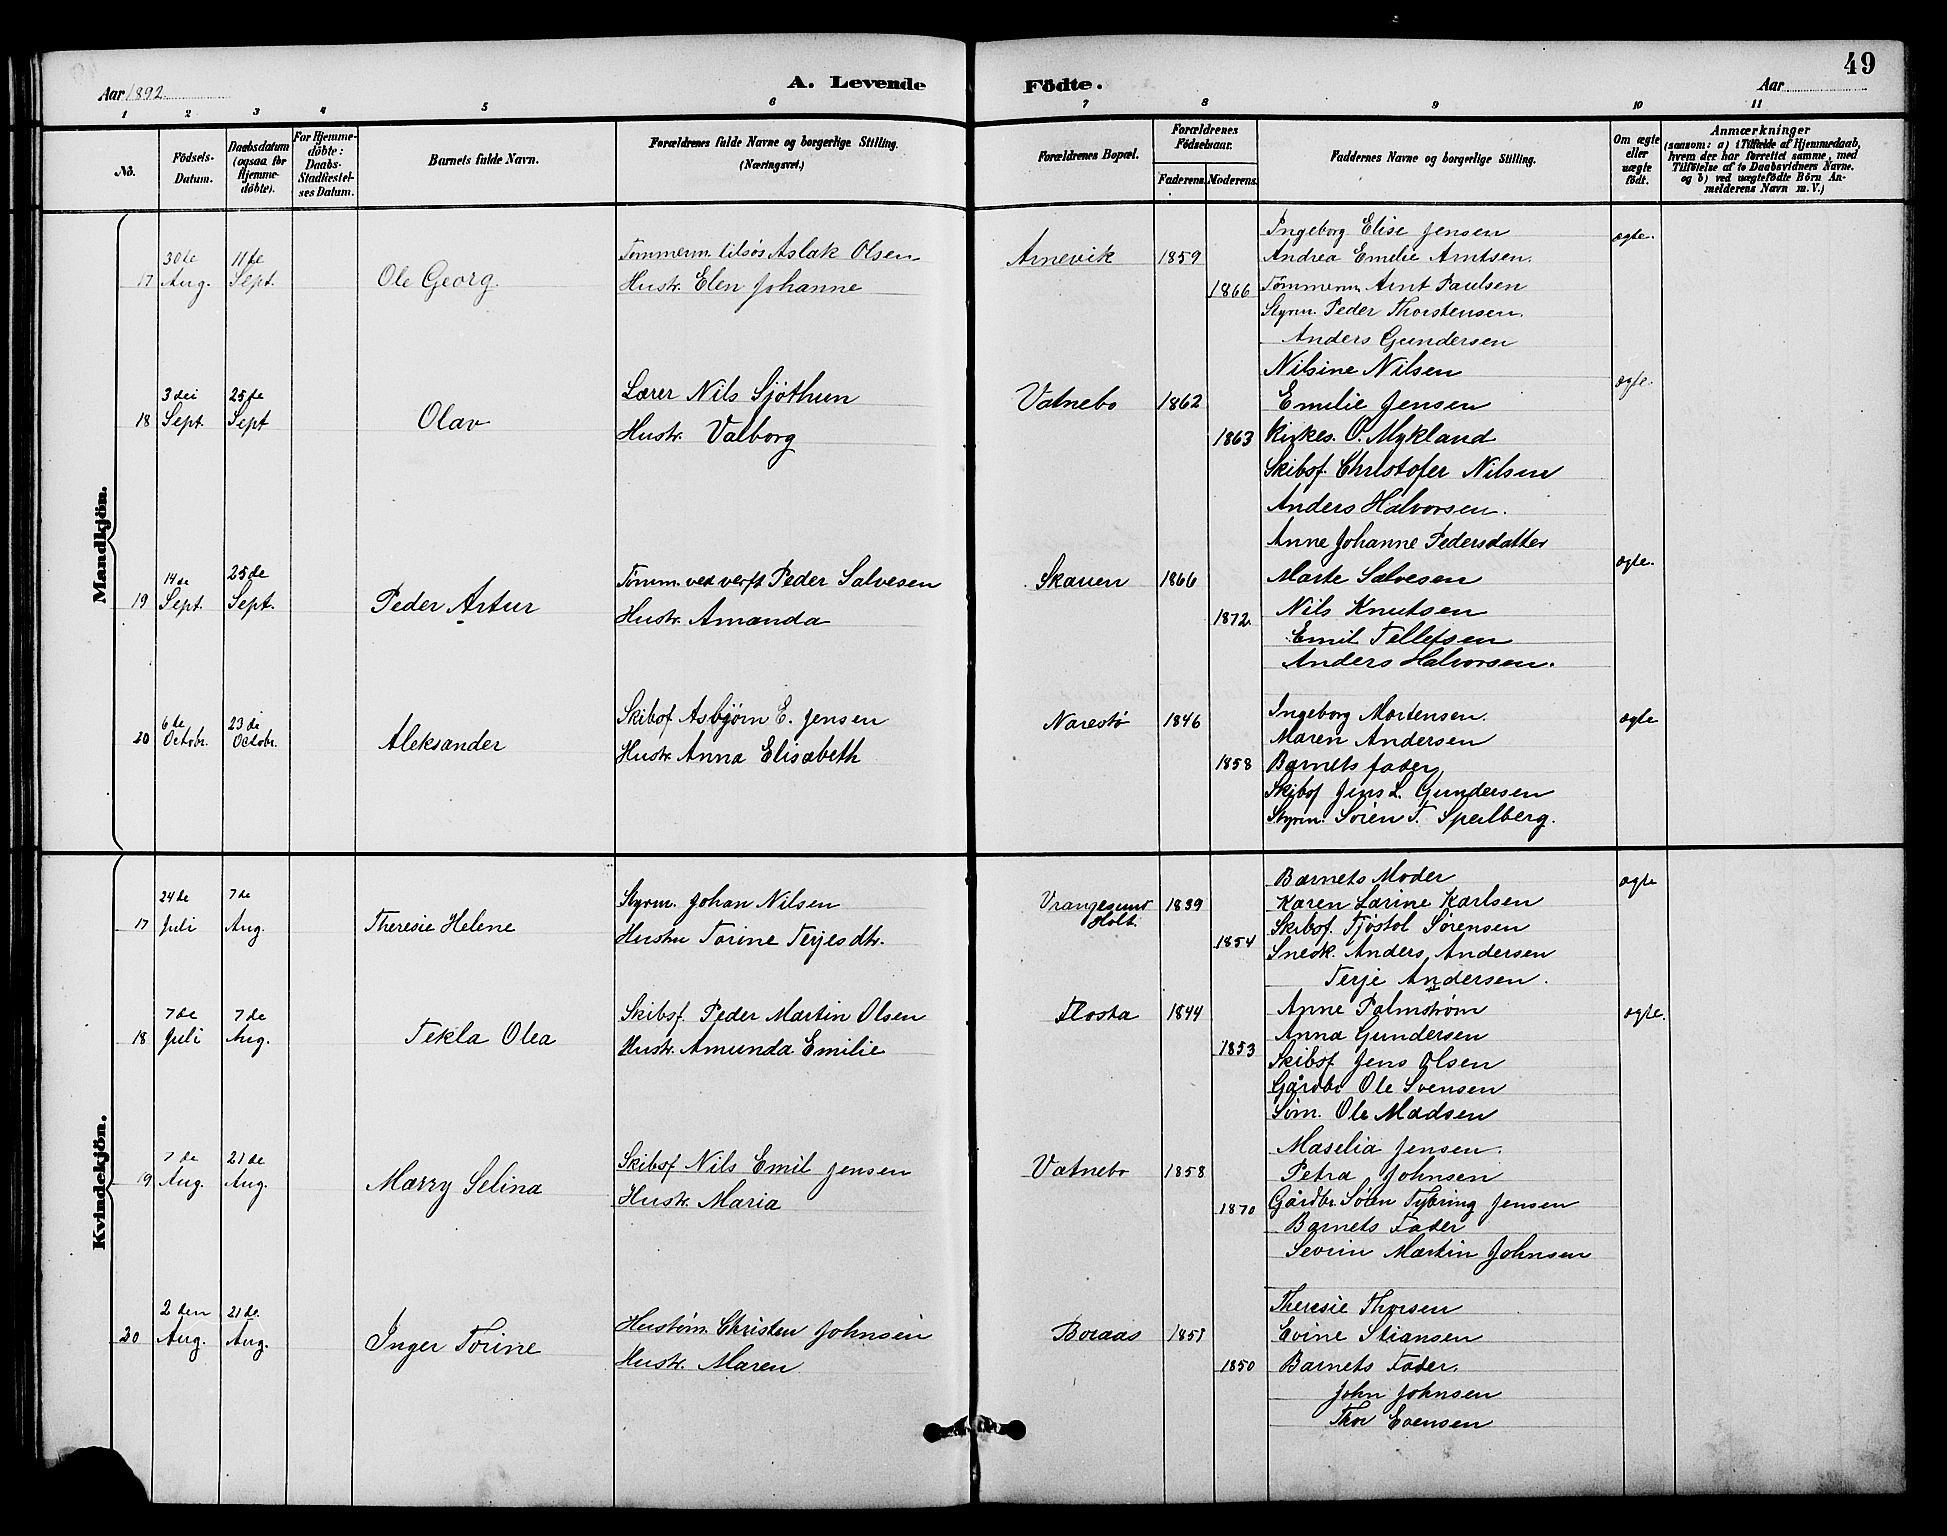 49
Aar 1892. A. Levende Födte. Aar
1 2 3 4 5 6 7 8 9 10 11
No.
Födsels-Datum.
Daabsdatum (ogsaa for Hjemme-döbte).
For Hjemme-döbte: Daabs-Stadfæstel-ses Datum.
Barnets fulde Navn.
Forældrenes fulde Navne og borgerlige Stilling.
(Næringsvei.)
Forældrenes Bopæl.
Forældrenes Födselsaar.
Faderens. Moderens.
Faddernes Navne og borgerlige Stilling.
Om ægte eller uægte födt.
Anmærkninger
(saasom: a) i Tilfælde af Hjemmedaab, hvem der har forrettet samme, med Tilföielse af to Daabsvidners Navne. og b) ved uægtefödte Börn An-melderens Navn m. V.)
Mandkjön.
17 30te Aug. 11te Sept. Ole Georg.
Tømmerm. tilsøs Aslak Olsen
Hustr. Elen Johanne
Arnevik 1859 1866
Ingeborg Elise Jensen
Andrea Emelie Arntsen.
Tømmerm. Arnt Paulsen
Styrm. Peder Thorstensen.
Anders Gundersen
ægte.
18 3die Sept. 25de Sept Olav
Lærer Nils Sjöthun
Hustr. Valborg
Vatnebo 1862 1863
Nilsine Nilsen
Emilie Jensen
Kirkes. O. Mykland
Skibsf. Christofer Nilsen
Anders Halvorsen.
ægte.
19 14de Sept. 25de Sept. Peder Artur
Tømm. ved verft Peder Salvesen
Hustr. Amanda
Skaven 1866 1872
Anne Johanne Pedersdatter
Marte Salvesen
Nils Knutsen
Emil Tellefsen
Anders Halvorsen.
ægte.
20 6te Octobr. 23di Octobr. Aleksander
Skibsf Asbjørn E. Jensen
Hustr. Anna Elisabeth
Narestø 1846 1858
Ingeborg Mortensen.
Maren Andersen
Barnets fader
Skibsf Jens L. Gundersen
Styrm. Sören T. Speilberg.
ægte
Kvindekjön.
17 24de Juli 7de Aug. Theresie Helene
Styrm. Johan Nilsen
Hustru Torine Terjesdtr.
Vrangesund Holt. 1839 1854
Barnets Moder
Karen Larine Karlsen
Skibsf. Tjöstol Sørensen
Snedk. Anders Andersen
Terje Andersen.
ægte
18 7de Juli 7de Aug. Tekla Olea
Skibsf. Peder Martin Olsen
Hustr. Amunda Emilie
Flosta 1844 1853
Anne Palmstrøm
Anna Gundersen
Skibsf Jens Olsen
Gårdbr Ole Svensen
Søm. Ole Madsen
ægte.
19 7de Aug. 21de Aug. Marry Selina
Skibsf Nils Emil Jensen
Hustr. Maria
Vatnebo 1858 1870
Maselia Jensen.
Petra Johnsen
Gårdbr. Sören Tybring Jensen
Barnets Fader
Severin Martin Johnsen
20 2den Aug. 21de. Aug. Inger Torine
Christen Johnsen
Hustr. Maren
Boraas 1851 1850
Theresie Thorsen
Evine Stiansen
Barnets Fader.
John Johnsen
Thor Evensen